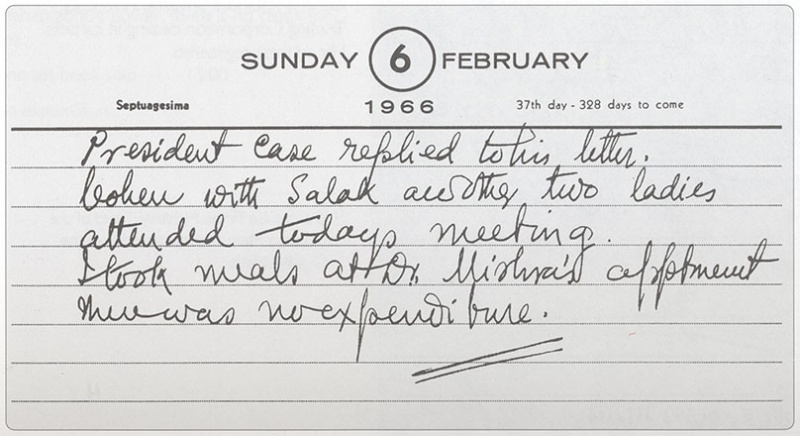 SUNDAY 6 FEBRUARY
Septuagesima 1966 37th day - 328 days to come
President Case replied to his letter.
Cohen with Salak and other two ladies
attended todays meeting.
I took meals at Dr. Mishra's apptment
There was no expenditure.